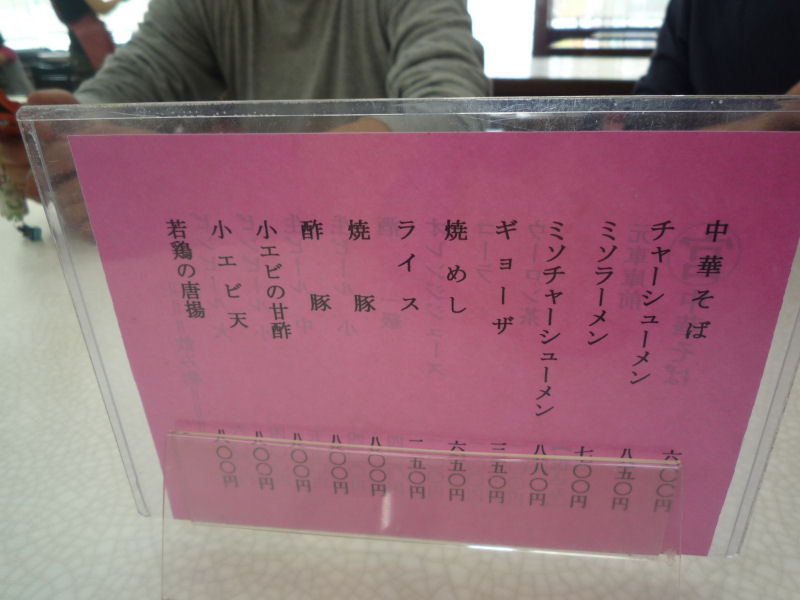 中華そば 六〇〇円
チャーシューメン 八五〇円
ミソラーメン 七〇〇円
ミソチャーシューメン 八八〇円
ギョーザ 三五〇円
焼めし 六五〇円
ライス 一五〇円
焼豚 八〇〇円
酢豚 八〇〇円
小エビの甘酢 八〇〇円
小エビ天 八〇〇円
若鶏の唐揚 八〇〇円